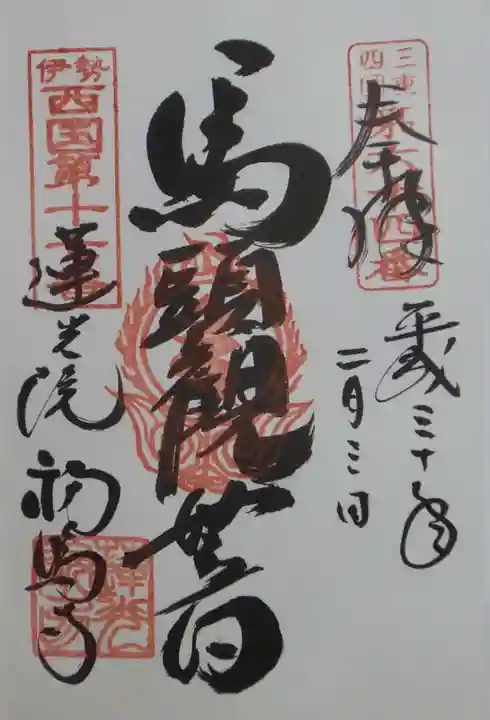 奉拝
平成三十年
二月三日
馬頭観世音
蓮光院 初馬寺
三重
四国
第六十四番
伊勢
西国第十